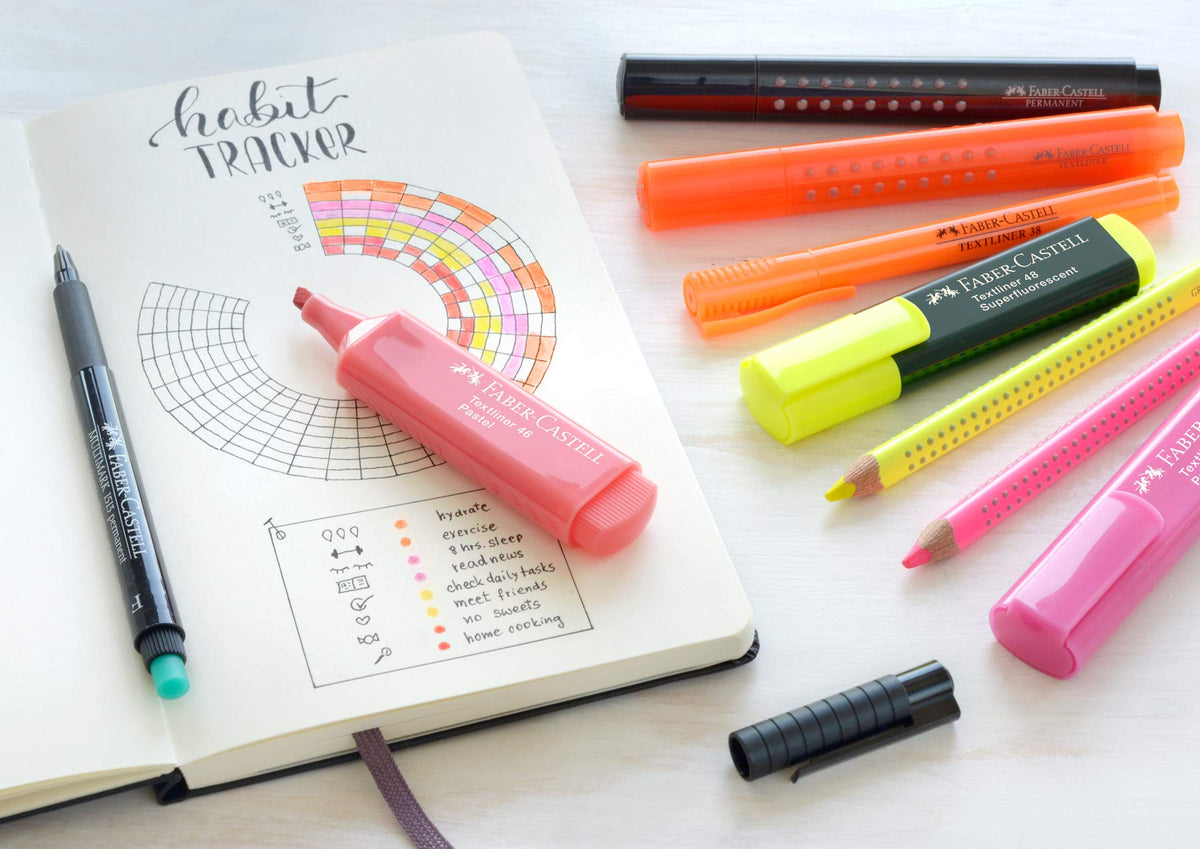 habit
TRACKER
hydrate
exercise
8 hrs. sleep
read news
check daily tasks
meet friends
no sweets
home cooking
FABER-CASTELL
MULTIMARK 1513 permanent
FABER-CASTELL
Textliner 46
Pastel
FABER-CASTELL
PERMANENT
FABER-CASTELL
TEXTLINER
FABER-CASTELL
TEXTLINER 38
FABER-CASTELL
Textliner 48
Superfluorescent
FABER